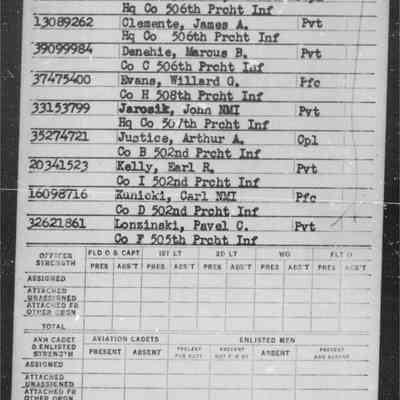 Hq Co 506th Prcht Inf
13089262 Clemente, James A. Pvt
Hq Co 506th Prcht Inf
39099984 Denehie, Marcus B. Pvt
Co C 506th Prcht Inf
37475400 Evans, Willard G. Pfc
Co H 508th Prcht Inf
33153799 Jarosik, John NMI Pvt
Hq Co 507th Prcht Inf
35274721 Justice, Arthur A. Cpl
Co B 502nd Prcht Inf
20341523 Kelly, Earl R. Pvt
Co I 502nd Prcht Inf
16098716 Kunicki, Carl NMI Pfc
Co D 502nd Prcht Inf
32621861 Lonzinski, Pavel C. Pvt
Co F 505th Prcht Inf
OFFICER STRENGTH FLD O & CAPT 1ST LT 2D LT WO FLT O
PRES ABS'T PRES ABS'T PRES ABS'T PRES ABS'T PRES ABS'T
ASSIGNED
ATTACHED UNASSIGNED
ATTACHED FR OTHER ORGN
TOTAL
AVN CADET & ENLISTED STRENGTH AVIATION CADETS ENLISTED MEN
PRESENT ABSENT PRESENT FOR DUTY PRESENT NOT FOR DY ABSENT PRESENT AND ABSENT
ASSIGNED
ATTACHED UNASSIGNED
ATTACHED FR OTHER ORGN